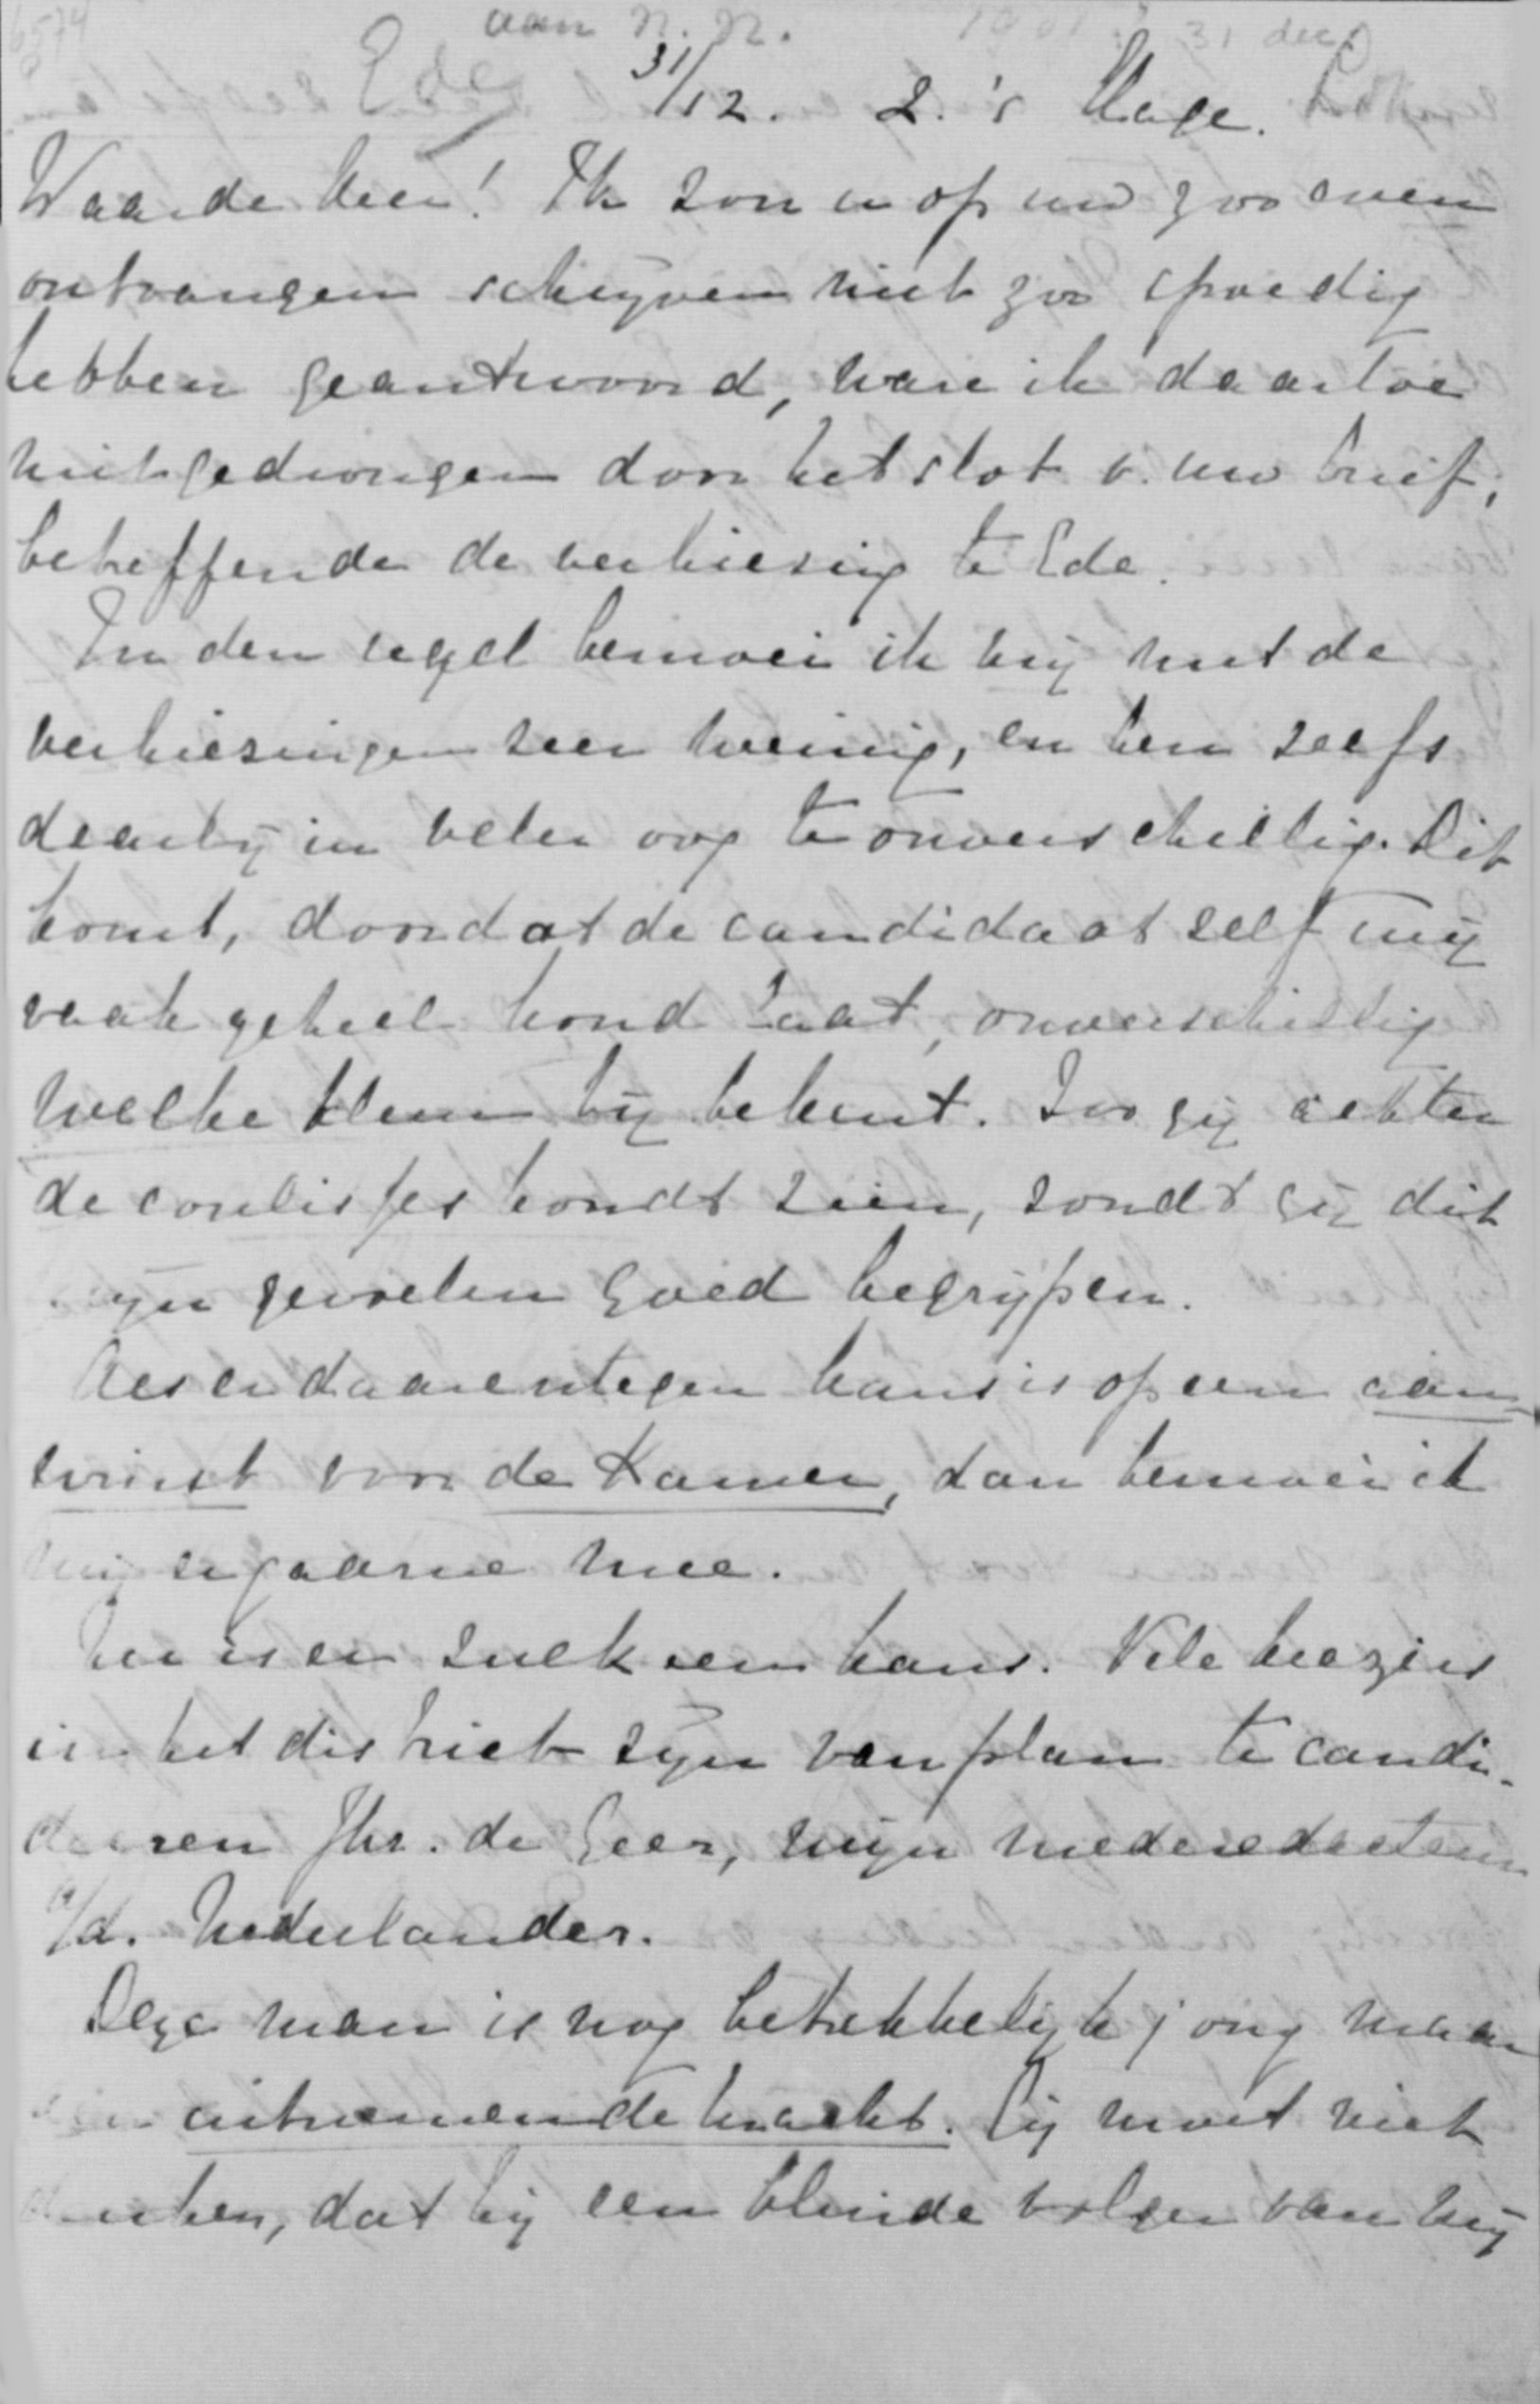 aan N.N. 31 dec
Ede 31/12. 2. 's Hage.
Waarde heer! Ik zou u op uw zoo even
ontvangen schrijven niet zoo spoedig
hebben geantwoord, ware ik daartoe
niet gedrongen door het slot v. uw brief,
betreffende de verkiesing te Ede.
In den regel bemoei ik mij met de
verkiesingen zeer weinig, en ben zelfs
daarbij in veler oog te onverschillig. Dit
komt, doordat de candidaat zelf mij
vaak geheel koud laat, onverschillig
welke kleur hij bekent. Zoo gij achter
de coulisses kondt zien, zoudt gij dit
mijn gevoelen goed begrijpen.
Als er daarentegen kans is op een aan-
winst voor de Kamer, dan bemoei ik
mij er gaarne mee.
Nu is er zulk een kans. Vele kiezers
in het district zijn van plan te candi-
deeren Jhr. de Geer, mijn mederedacteur
a/d. Nederlander.
Deze man is nog betrekkelijk jong maar
een uitnemende kracht. Gij moet niet
denken, dat hij een blinde volger van mij